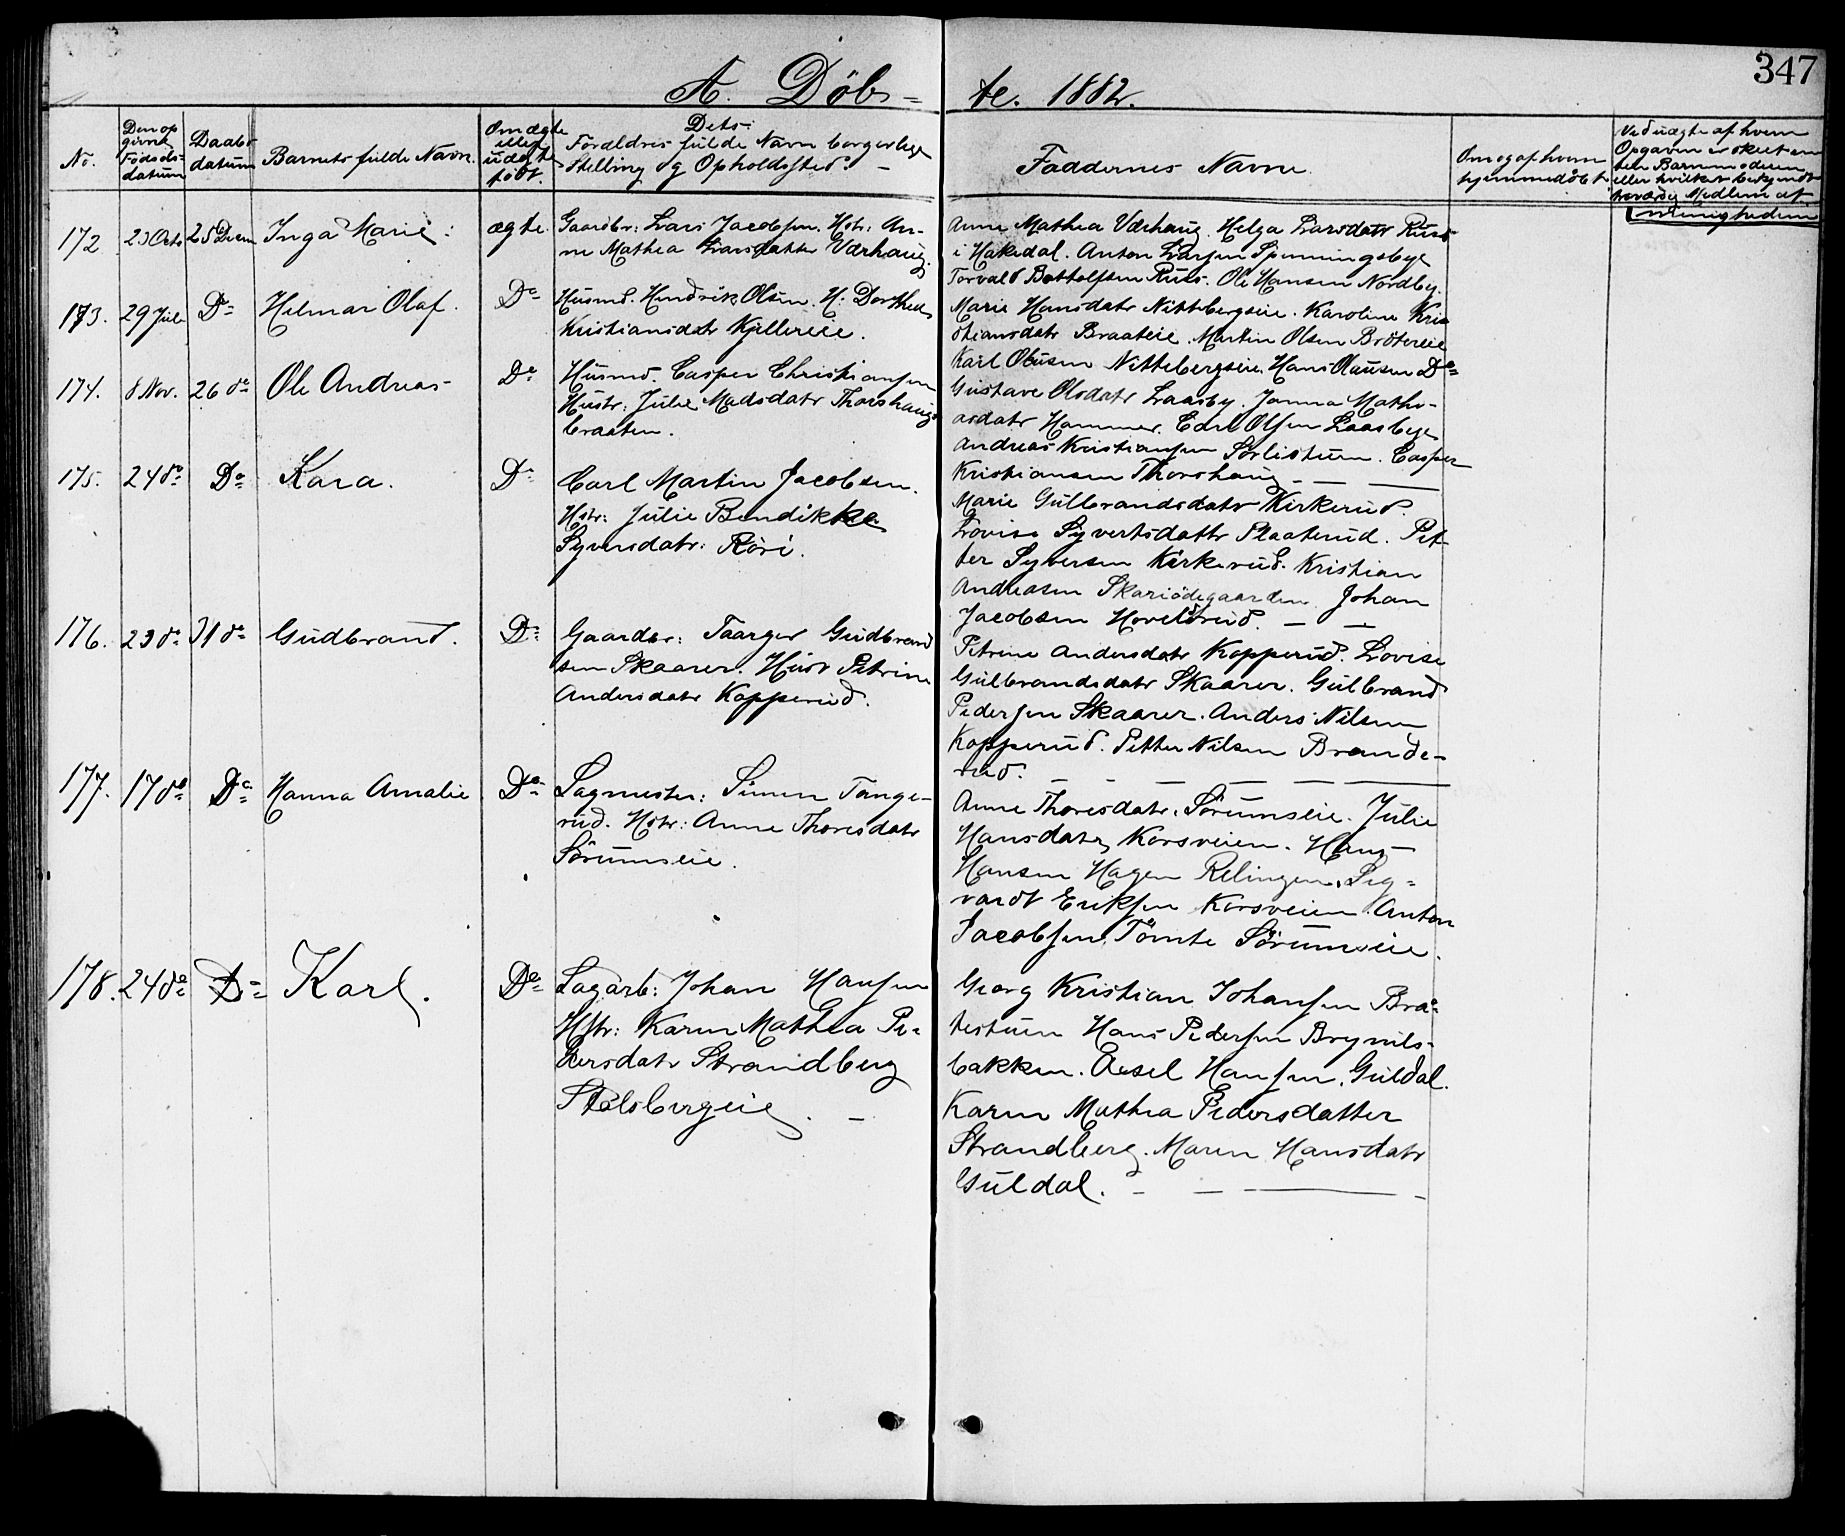 347
A. Döb-
te. 1882.
No.
Den opgivne Födselsdatum
Daabsdatum
Barnets fulde Navn.
Om ægte eller uægte född.
Dets Forældres fulde Navn borgerlige Stelling og Opholdssted.
Faddernes Navne.
Om og af hvem hjemmedöbt
Ved uægte af hvem Opgaven er skeet enten Barnemoderen eller hvilket bekjendt troværdig Medlem af Menigheden
172 23 Octo 25 Decem Inga Marie: ægte. Gaardbr: Lars Jacobsen. Hstr: An-
ne Mathea Larsdatter Værhaug.
Anne Mathea Værhaug. Helga Larsdatr Russ
i Hakedal. Anton Larsen Spenningsbye
Torvald Bottolfsen Russ. Ole Hansen Nordby.
173. 29 Juli Do Helmar Olaf. Do Husmd. Hendrik Olsen. H: Dorthea
Kristiansdatr Kjellereie.
Marie Hansdatr Nittebergseie. Karoline Kris
stiansdatr Braateie. Martin Olsen Brötereie
Karl Olausen Nittebergseie. Hans Olausen Do
174. 8 Nov. 26 do Ole Andreas Do Husmd. Casper Christiansen
Hustr: Julie Madsdatr Thorshaugs
braaten.
Gustave Olsdatr Laasby. Janna Mathi-
asdatr Hammer. Edv. Olsen Laasbye
Andreas Kristiansen Sörlistuen. Casper
Kristiansen Thorshaug
175. 24 do Do Kara. Do Carl Martin Jacobsen.
Hstr: Julie Bendikke
Syversdatr: Röri.
Marie Gulbrandsdatr Kirkerud.
Lovise Syvertsdattr Plaaterud. Pet-
ter Syversen Kirkerud. Kristian
Andreasen Skariödegaarden Johan
Jacobsen Hovelsrud.
176. 23 do 31 do Gudbrand. Do Gaardbr: Taarger Gudbrand
sen Skaarer. Hustr Petrine
Andersdatr Kopperud.
Petrine Andersdatr Kopperud. Lovise
Gulbrandsdatr Skaarer. Gulbrand
Pedersen Skaarer. Anders Nilsen
Kopperud. Petter Nilsen Brande-
rud.
177. 17 do Do Hanna Amalie Do Sagmester: Simen Tange-
rud. Hstr: Anne Thoresdatr
Sörumseie.
Anne Thoresdatr. Sörumseie. Julie
Hansdatr Korsveien. Hans
Hansen Hagen Relingen. Sig-
vardt Eriksen Korsveien. Anton
Jacobsen, Tömte Sörumseie.
178. 24 do Do Karl. Do Sagarb: Johan Hansen
Hstr: Karen Mathea Pe-
dersdatr Strandberg
Stalsbergeie.
Georg Kristian Johansen Bra-
testuen Hans Pedersen Brynils-
bakken. Axel Hansen. Guldal.
Karen Mathea Pedersdatter
Strandberg. Maren Hansdatr
Guldal.